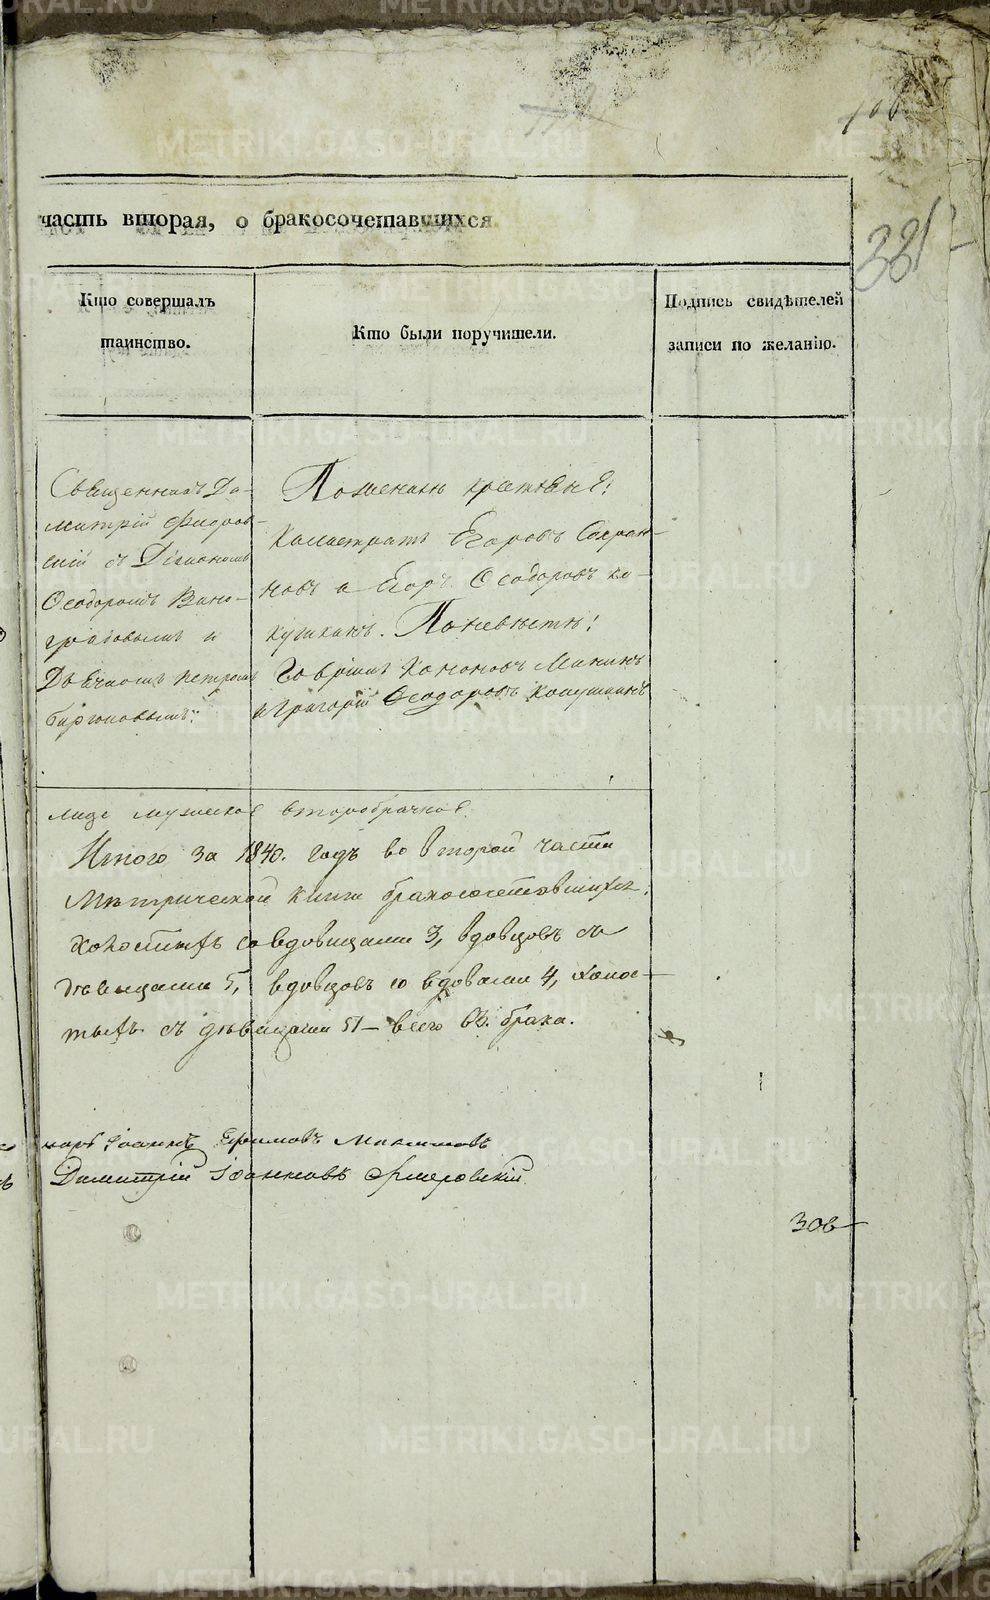 106
381
часть вторая, о бракосочетавшихся.
Кто совершалъ
таинство.
Кто были поручители.
Подпись свидѣтелей
записи по желанію.
Священникъ Ди-
митрій Флоров-
скій съ Діакономъ
Ѳеодоромъ Вино-
градовымъ и
Дьячкомъ Петромъ
По женихѣ крестьяне:
Калистратъ Егоровъ Сафро-
новъ и Егоръ Ѳеодоровъ Ко-
кушкинъ. По невѣстѣ:
Гавріилъ Кононовъ Мининъ
и Григорій Ѳеодоровъ Кокушкинъ
лице мужеское второбрачное.
Итого за 1840. годъ во второй части
Метрической книги бракосочетавшихся.
холостыхъ со вдовицами 3, вдовцовъ съ
дѣвицами 5, вдовцовъ со вдовами 4, холос-
тыхъ съ дѣвицами 51 – всего 63. брака.
Іоаннъ Ефимовъ
Димитрій Іоанновъ Флоровскій
306
METRIKI.GASO-URAL.RU